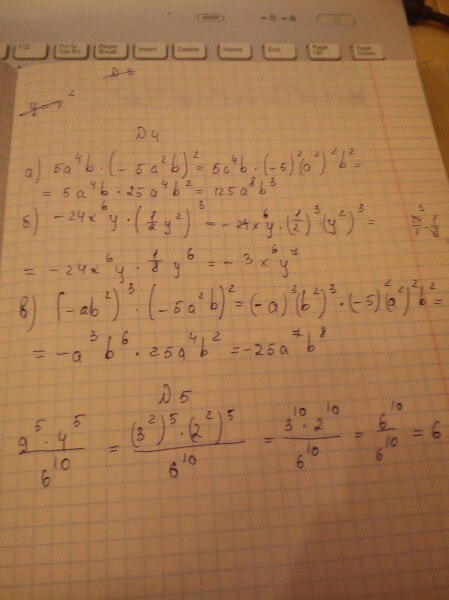 F12 Prt Sc Sys Rq Pause Break Insert Delete Home End Page Up Page Down
y = x²
D 4
а) 5a⁴b · (-5a²b)² = 5a⁴b · (-5)²(a²)²b² =
= 5a⁴b · 25a⁴b² = 125a⁸b³
б) -24x⁶y · (1/2 y²)³ = -24x⁶y · (1/2)³ · (y²)³ =
= -24x⁶y · 1/8 y⁶ = -3x⁶y⁷
в) (-ab²)³ · (-5a²b)² = (-a)³(b²)³ · (-5)²(a²)²b² =
= -a³b⁶ · 25a⁴b² = -25a⁷b⁸
D 5
9⁵ · 4⁵ / 6¹⁰ = (3²)⁵ · (2²)⁵ / 6¹⁰ = 3¹⁰ · 2¹⁰ / 6¹⁰ = 6¹⁰ / 6¹⁰ = 6